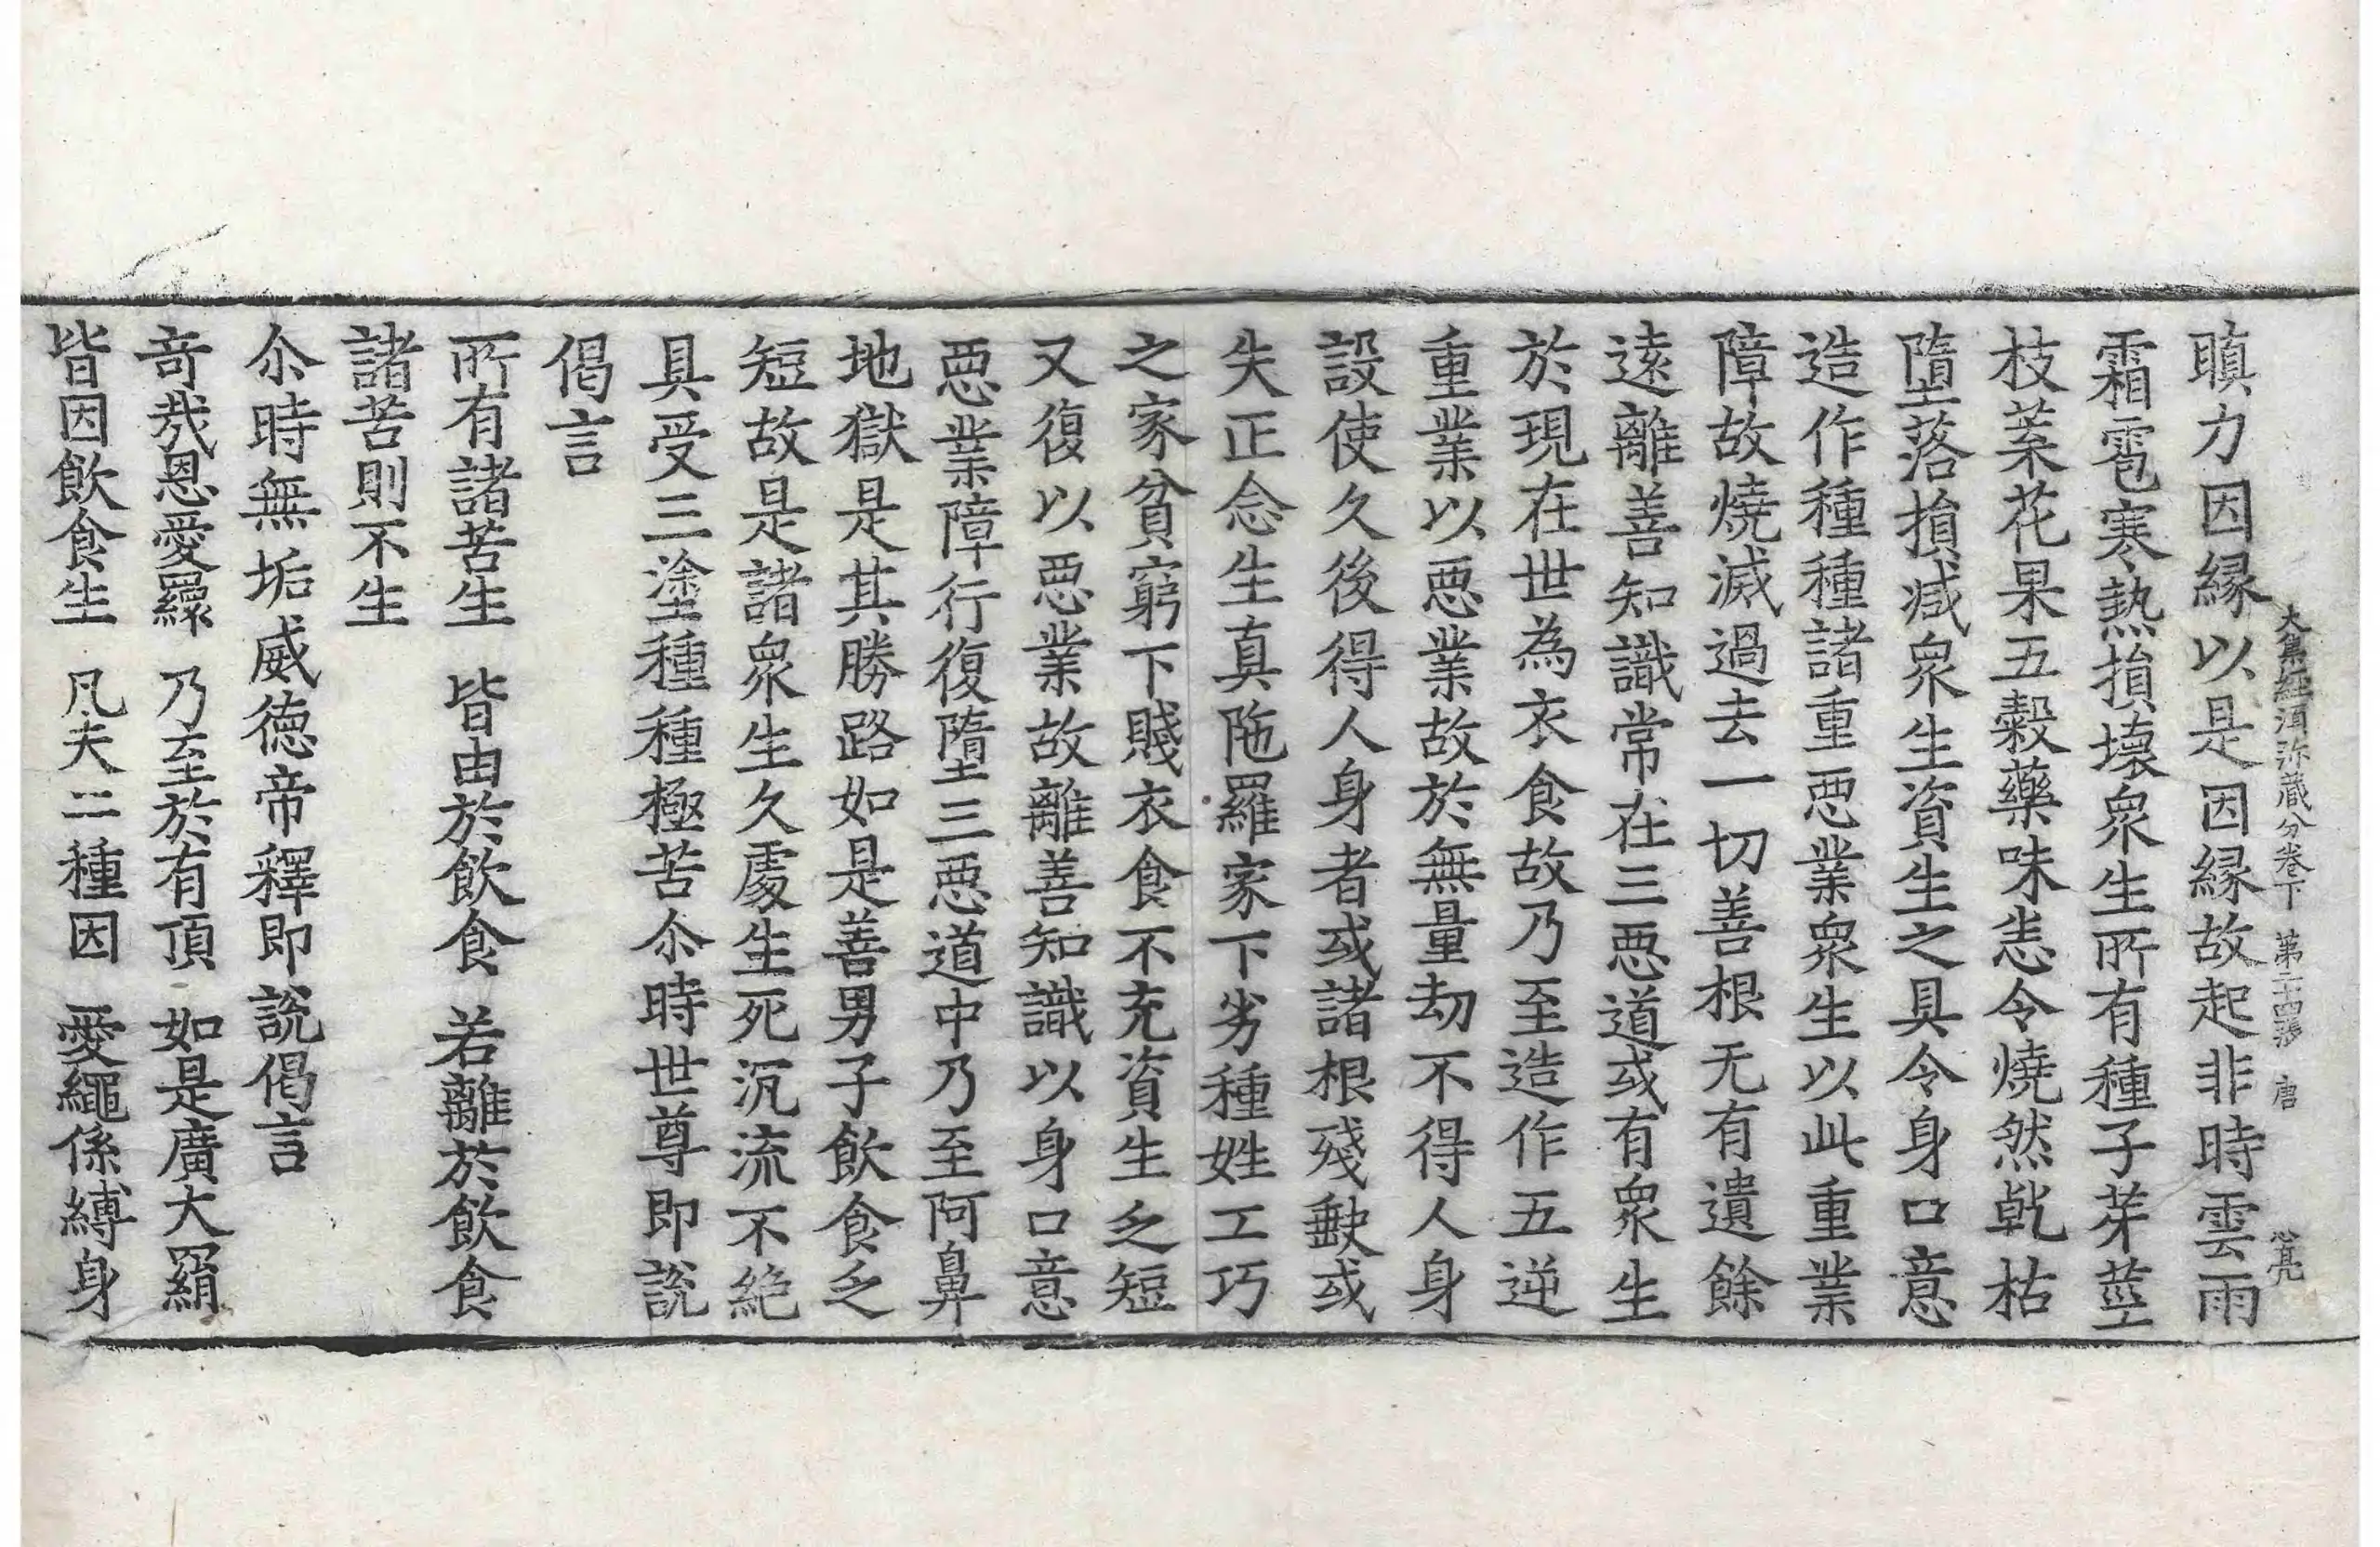 大集經湏弥蔵分卷下 第二十四張 唐
瞋力因緣以是因緣故起非時雲雨
霜雹寒熱損壞衆生所有種子芽莖
枝葉花果五穀藥味悉令燒然乹枯
墮落損减衆生資生之具令身口意
造作種種諸重惡業衆生以此重業
障故燒滅過去一切善根无有遺餘
逺離善知識常在三惡道或有衆生
於現在世為衣食故乃至造作五逆
重業以惡業故於無量劫不得人身
設使久後得人身者或諸根殘缺或
失正念生真陁羅家下劣種姓工巧
之家貧窮下賤衣食不充資生乏短
又復以惡業故離善知識以身口意
惡業障行復墮三惡道中乃至阿鼻
地獄是其勝路如是善男子飲食乏
短故是諸衆生久處生死沉流不絕
具受三塗種種極苦尒時世尊即說
偈言
所有諸苦生 皆由於飲食 若離於飲食
諸苦則不生
尒時無垢威德帝釋即說偈言
竒哉恩愛羂 乃至於有頂 如是廣大羂
皆因飲食生 凡夫二種因 愛繩係縛身